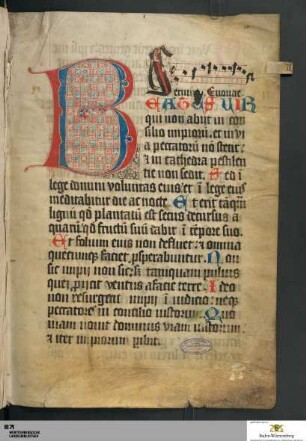 Seruite Euouae
BEATUS UIR
qui non abiit in con
silio impioru et in via
peccatorū nō stetit
et in cathedra pestilen
tie non sedit Sed in
lege domini voluntas eius et in lege eius
meditabitur die ac nocte Et erit tāqm̄
lignū qd plantatū est secus decursus a
quarū qd fructū suū dabit in tēpore suo
Et folium eius non defluet et omnia
quecunque faciet psperabuntur Non
sic impij non sic sed tamquam puluis
quē proicit ventus a facie terre Ideo
non resurgent impij in iudicio neqʒ
peccatores in concilio iustorum Quo
niam nouit dominus viam iustorum
et iter impiorum peribit
WÜRTTEMBERGISCHE
LANDESBIBLIOTHEK
Baden-Württemberg